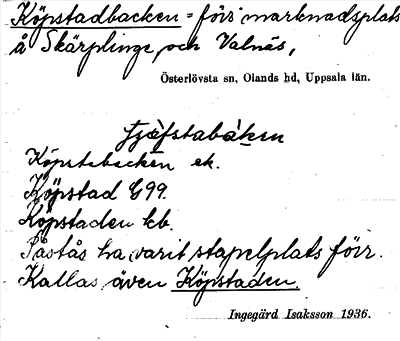 Köpstadbacken = förr marknadsplats
å Skärplinge och Valnäs,
Österlövsta sn, Olands hd, Uppsala län.
Köpstabacken ek.
Köpstad G99.
Köpstaden kb.
Påstås ha varit stapelplats förr.
Kallas även Köpstaden.
Ingegärd Isaksson 1936.